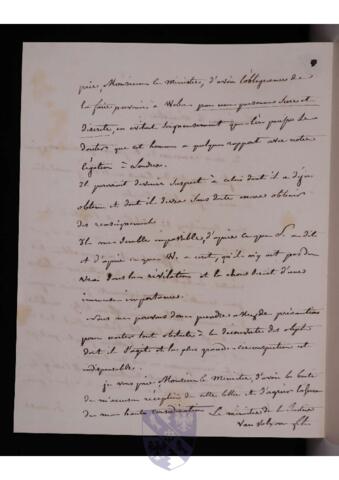 prie, Monsieur le Ministre, d'avoir l'obligeance de
la faire parvenir à Weber par une personne sure et
discrète, en évitant soigneusement que l'on puisse se
douter que cet homme a quelque rapport avec notre
légation à Londres.
Il pourrait devenir suspect à celui dont il a déjà
obtenu et dont il devra sans doute encore obtenir
des renseignements.
Il me semble impossible, d'après ce que S. a dit
et d'après ce que W. a écrit, qu'il n'y ait pas du
vrai dans leur révélation et la chose serait d'une
immense importance.
Nous ne pouvons donc prendre de précautions
pour mettre tout obstacle à la découverte des objets
dont il s'agit et la plus grande circonspection est
indispensable.
Je vous prie Monsieur le Ministre, d'avoir la bonté
de m'accuser réception de cette lettre et d'agréer l'assurance
de ma haute considération. Le ministre de la Justice